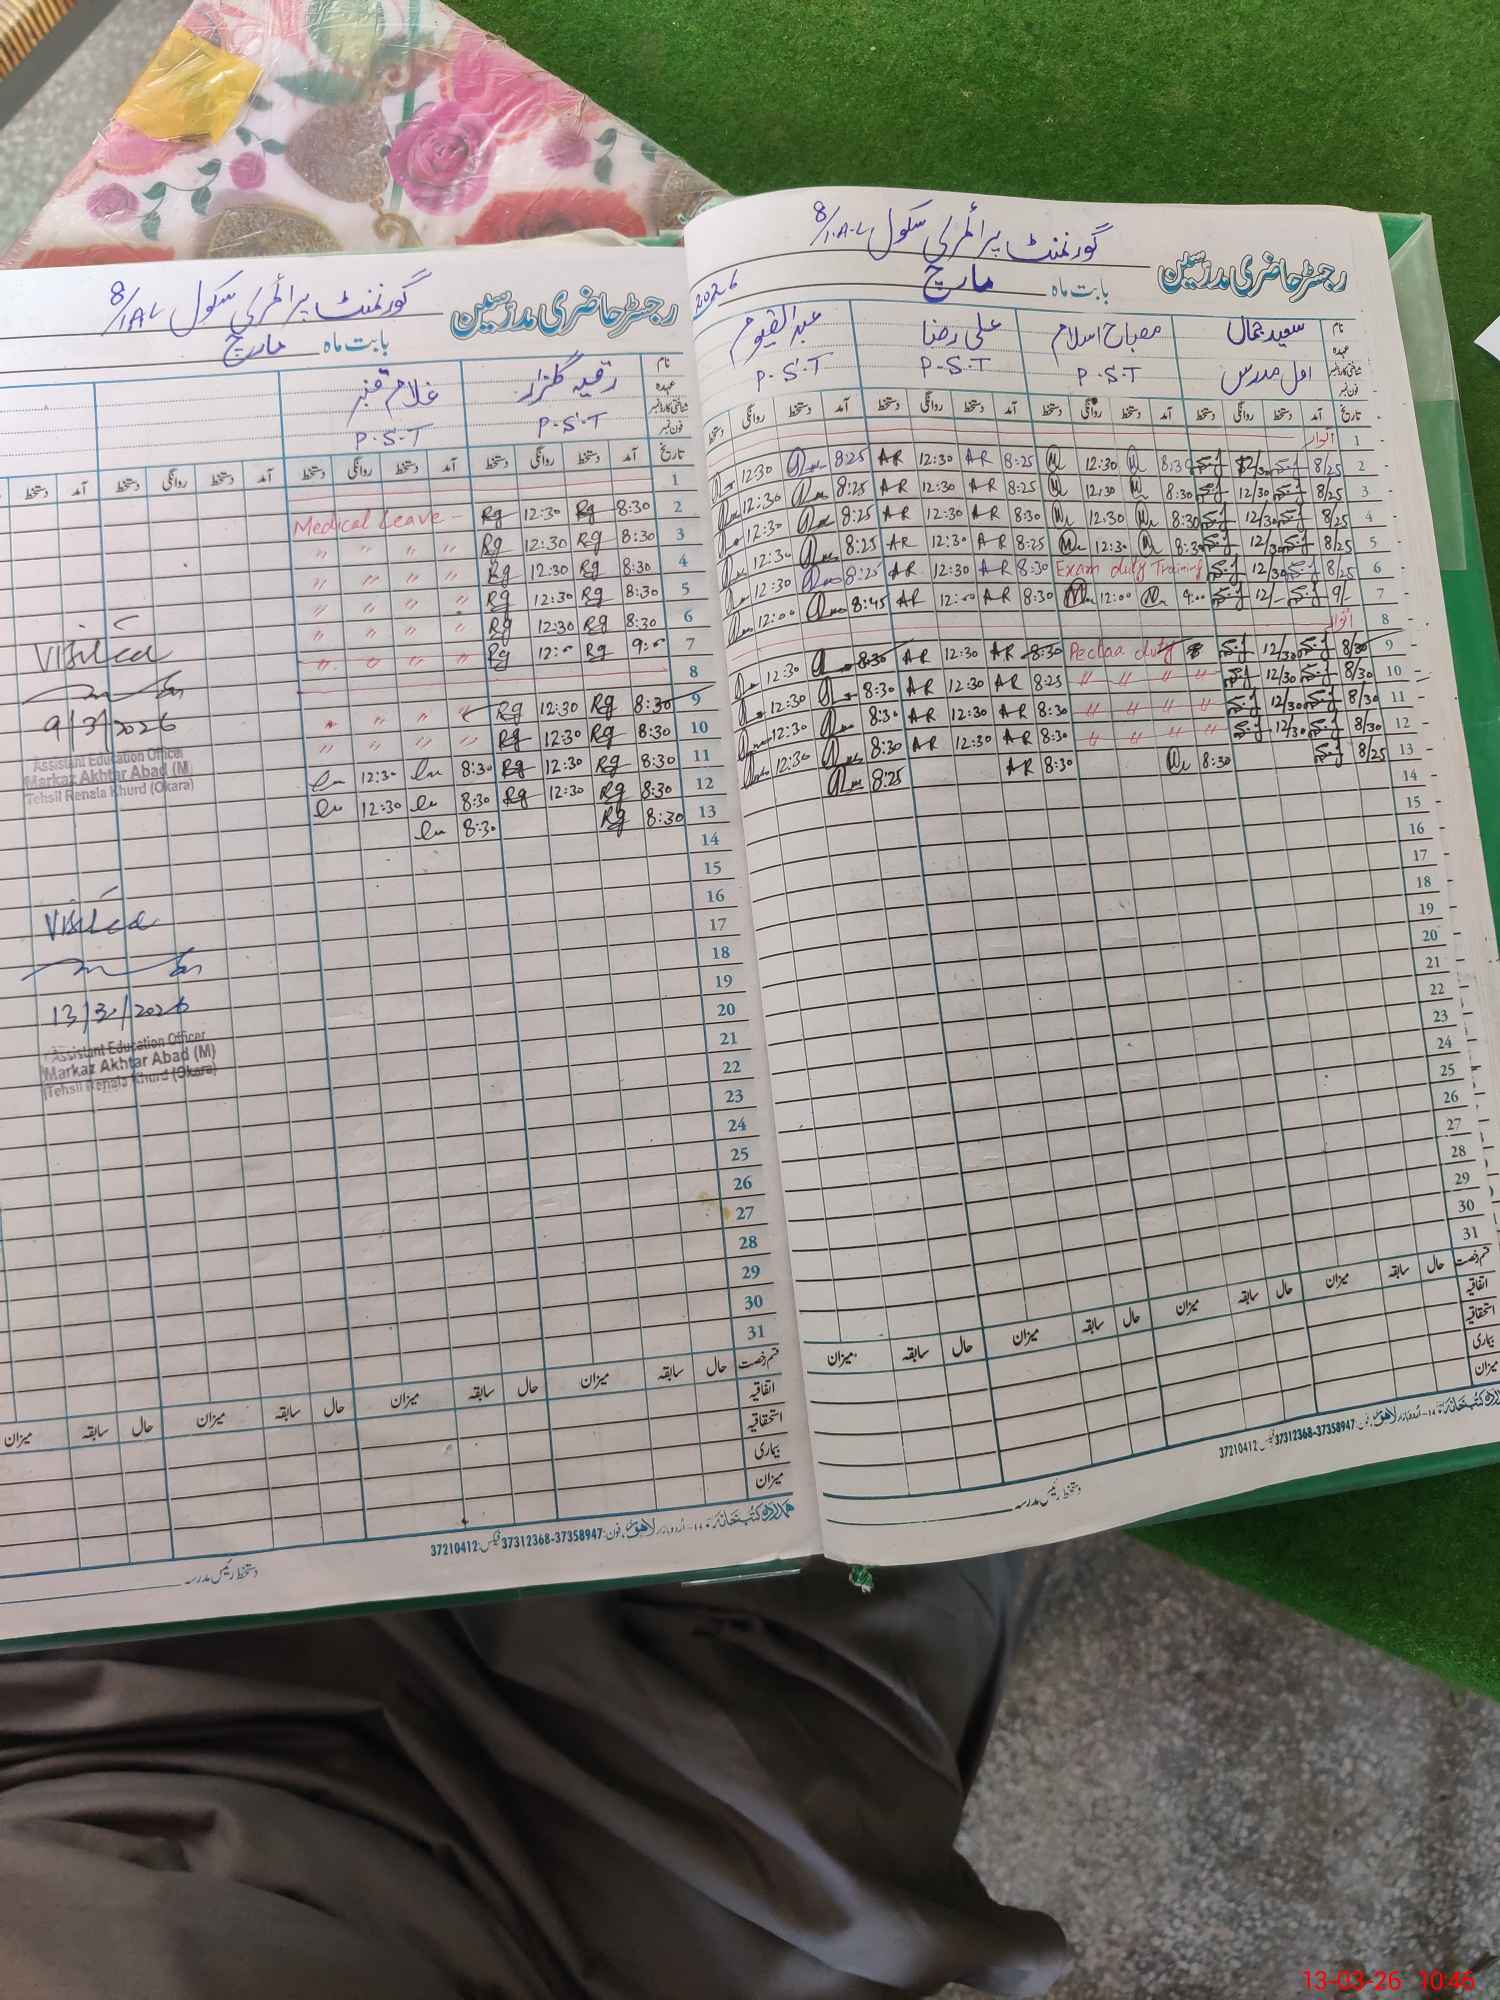 گورنمنٹ پرائمری سکول 8/1.A.L
رجسٹر حاضری مدرسین
بابت ماہ مارچ
2026
نام سعید جمال مصباح اسلام علی رضا عبدالقیوم
عہدہ اول مدرس P.S.T P.S.T P.S.T
شناختی کارڈ نمبر
فون نمبر
تاریخ آمد دستخط روانگی دستخط آمد دستخط روانگی دستخط آمد دستخط روانگی دستخط آمد دستخط روانگی دستخط
1 اتوار
2 8/25 12/30 8:30 12:30 8:25 AR 12:30 AR 8:25 12:30
3 8/25 12/30 8:30 12:30 8:25 AR 12:30 AR 8:25 12:30
4 8/25 12/30 8:30 12:30 8:30 AR 12:30 AR 8:25 12:30
5 8/25 12/30 8:30 12:30 8:25 AR 12:30 AR 8:25 12:30
6 8/25 12/30 Exam duty Training 8:30 AR 12:30 AR 8:25 12:30
7 9/- 12/- 9:00 12:00 8:30 AR 12:00 AR 8:45 12:00
8 اتوار
9 8/30 12/30 Pectaa duty 8:30 AR 12:30 AR 8:30 12:30
10 8/30 12/30 " " " " 8:25 AR 12:30 AR 8:30 12:30
11 8/30 12/30 " " " " 8:30 AR 12:30 AR 8:30 12:30
12 8/30 12/30 " " " " 8:30 AR 12:30 AR 8:30 12:30
13 8/25 8:30 8:30 AR 8:25
14
15
16
17
18
19
20
21
22
23
24
25
26
27
28
29
30
31
قسم رخصت حال سابقہ میزان حال سابقہ میزان حال سابقہ میزان حال سابقہ میزان
اتفاقیہ
استحقاقیہ
بیماری
میزان
لاہور فون: 37312368-37358947 فیکس: 37210412
دستخط رئیس مدرسہ
گورنمنٹ پرائمری سکول 8/1AL
رجسٹر حاضری مدرسین
بابت ماہ مارچ
نام رقیہ گلزار غلام قنبر
عہدہ P.S.T P.S.T
شناختی کارڈ نمبر
فون نمبر
تاریخ آمد دستخط روانگی دستخط آمد دستخط روانگی دستخط آمد دستخط روانگی دستخط آمد دستخط
1
2 8:30 Rg 12:30 Rg Medical Leave
3 8:30 Rg 12:30 Rg " " " "
4 8:30 Rg 12:30 Rg " " " "
5 8:30 Rg 12:30 Rg " " " "
6 8:30 Rg 12:30 Rg " " " "
7 9:00 Rg 12:00 Rg " " " "
8
9 8:30 Rg 12:30 Rg " " "
10 8:30 Rg 12:30 Rg " " " "
11 8:30 Rg 12:30 Rg 8:30 12:30
12 8:30 Rg 12:30 Rg 8:30 12:30
13 8:30 Rg 8:30
14
15
16
17
18
19
20
21
22
23
24
25
26
27
28
29
30
31
Visited
9/3/2026
Assistant Education Officer
Markaz Akhtar Abad (M)
Tehsil Renala Khurd (Okara)
Visited
13/3/2026
Assistant Education Officer
Markaz Akhtar Abad (M)
Tehsil Renala Khurd (Okara)
قسم رخصت حال سابقہ میزان حال سابقہ میزان حال سابقہ میزان حال سابقہ میزان
اتفاقیہ
استحقاقیہ
بیماری
میزان
ہمدرد کتب خانہ 14-اردو بازار لاہور فون: 37312368-37358947 فیکس: 37210412
دستخط رئیس مدرسہ
13-03-26 10:46